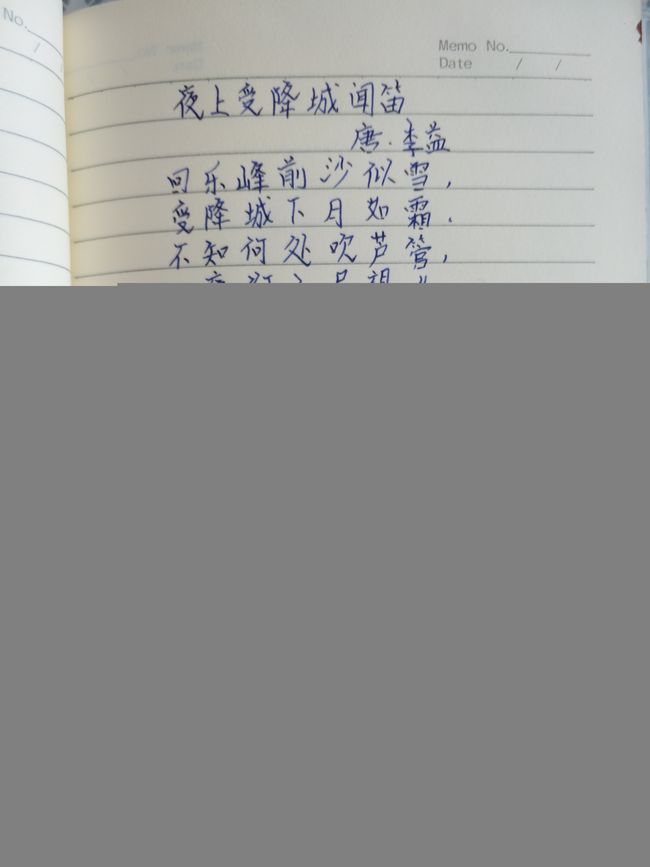 No.
/
Memo No.
Date / /
夜上受降城闻笛
唐·李益
回乐峰前沙似雪,
受降城下月如霜.
不知何处吹芦管,